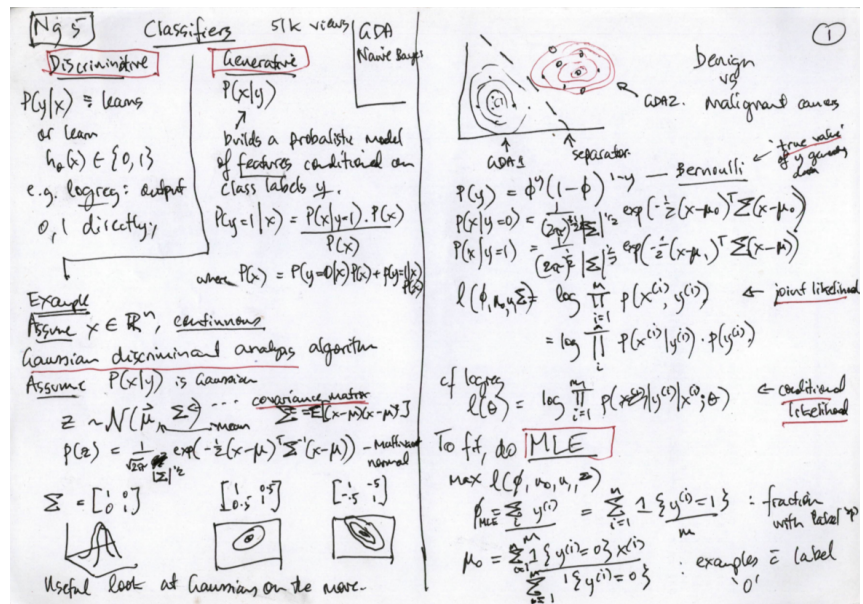 Ng 5 Classifiers 51k views
GDA
Naive Bayes
Discriminitive
P(y|x) = learns
or learn
h₀(x) ∈ {0,1}
e.g. logreg: output
0,1 directly,
Generative
P(x|y)
builds a probalistic model
of features conditional on
class labels y.
P(y=1|x) = P(x|y=1).P(x)
P(x)
where P(x) = P(y=0|x)P(x) + P(y=1|x)P(x)
Example
Assume x ∈ ℝⁿ, continuous
Gaussian discriminant analysis algorithm
Assume P(x|y) is Gaussian
covariance matrix
z ~ N(μ⃗, Σ) Σ = E[(x-μ)(x-μ)ᵀ]
mean
p(z) = 1/√2π |Σ|^½ exp(-½(x-μ)ᵀΣ⁻¹(x-μ)) – Multivariant normal
Σ = [1 0; 0 1] [1 0.5; 0.5 1] [1 -.5; -.5 1]
Useful look at Gaussians on the move.
1
Benign
vs
malignant cancers
GDA2.
GDA1 separator.
true value of y generating
P(y) = φ^y(1-φ)^(1-y) — Bernoulli
P(x|y=0) = 1/(2π)^½|Σ|^½ exp(-½(x-μ₀)ᵀΣ(x-μ₀))
P(x|y=1) = 1/(2π)^½|Σ|^½ exp(-½(x-μ₁)ᵀΣ(x-μ))
l(φ,μ₀,μ,Σ) = log ∏_{i=1}^m p(x⁽ⁱ⁾,y⁽ⁱ⁾) ← joint likelihood
= log ∏_i^m p(x⁽ⁱ⁾|y⁽ⁱ⁾).p(y⁽ⁱ⁾)
cf logreg
l(θ) = log ∏_{i=1}^m p(y⁽ⁱ⁾|x⁽ⁱ⁾;θ) ← conditional
likelihood
To fit, do MLE
max l(φ,μ₀,μ₁,Σ)
φ_MLE = Σ_i y⁽ⁱ⁾/m = Σ_{i=1}^m 1{y⁽ⁱ⁾=1}/m : fraction
with label '1'
μ₀ = Σ_{i=1}^m 1{y⁽ⁱ⁾=0}x⁽ⁱ⁾ / Σ_{i=1}^m 1{y⁽ⁱ⁾=0} : examples c̄ label
'0'